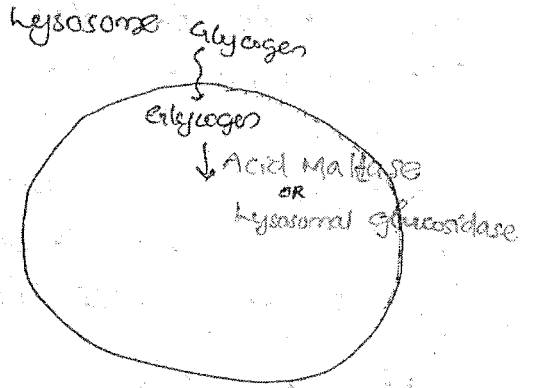 Lysosome Glycogen
Glycogen
Acid Maltase
OR
Lysosomal glucosidase